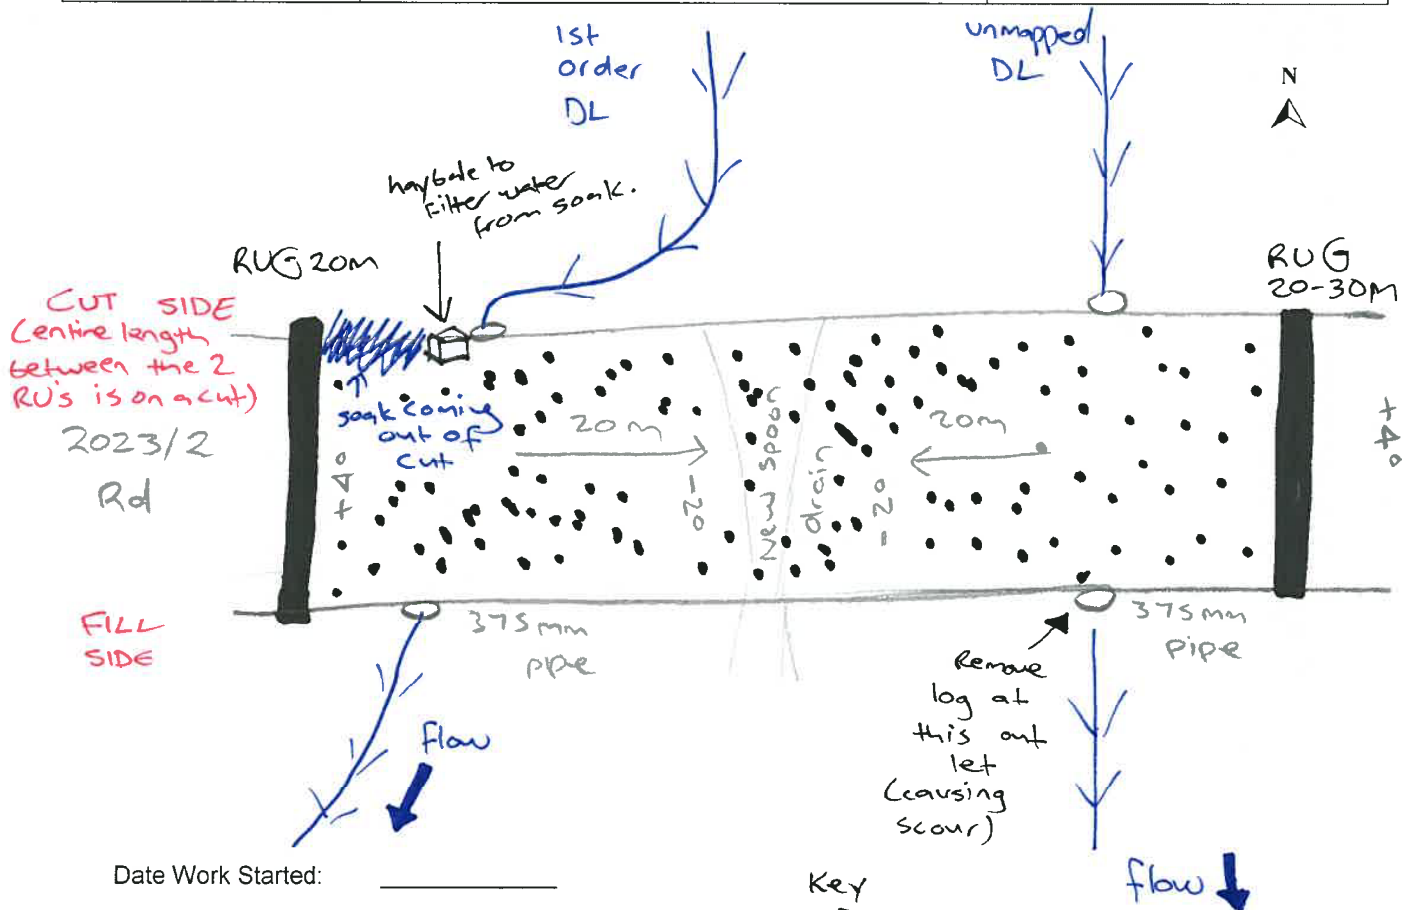 1st
order
DL
unmapped
DL
N
haybale to
filter water
from soak.
RUG 20m
RUG
20-30m
CUT SIDE
(entire length
between the 2
RU's is on a cut)
2023/2
Rd
soak coming
out of
cut
+4°
20m
-2°
New spoon
drain
-2°
20m
+4°
FILL
SIDE
375mm
pipe
375mm
pipe
Remove
log at
this out
let
(causing
scour)
flow
flow
Date Work Started:
Key